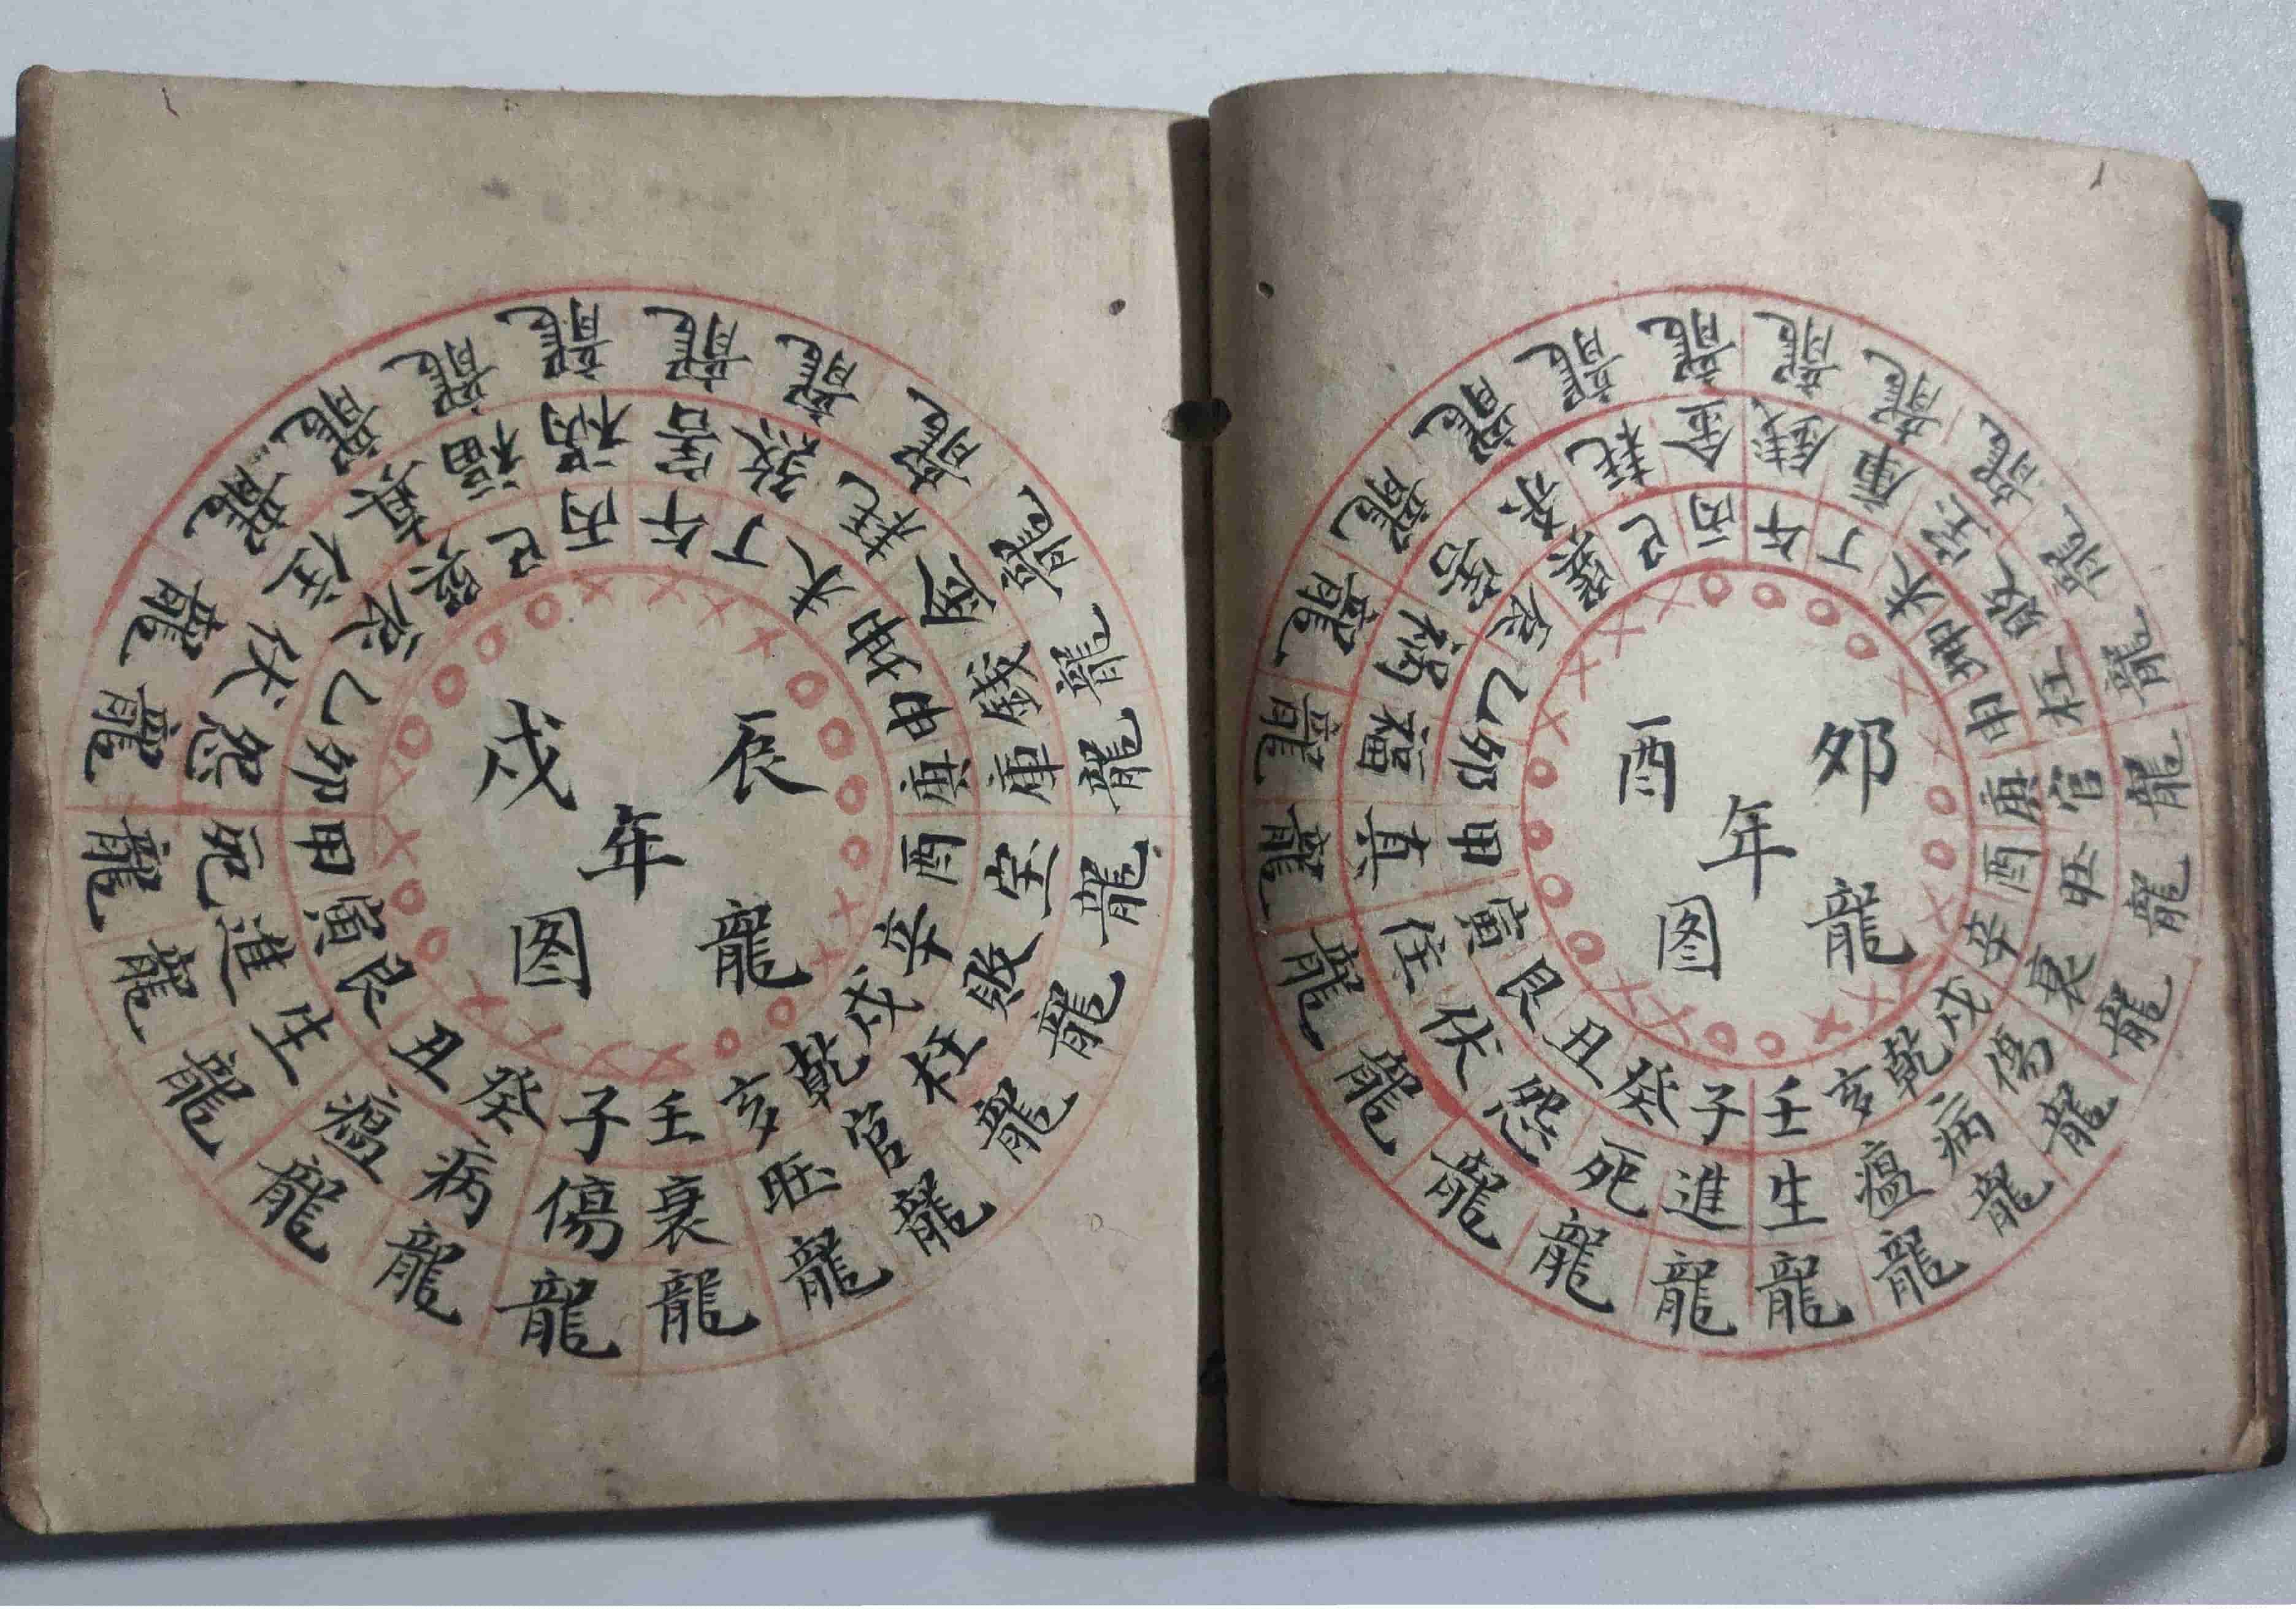 卯酉
年
龍图
子癸丑艮寅甲卯乙辰巽巳丙午丁未坤申庚酉辛戌乾亥壬
進死怨伏住真福祸害煞耗金錢庫宝敗枉官旺衰傷病瘟生
龍龍龍龍龍龍龍龍龍龍龍龍龍龍龍龍龍龍龍龍龍龍龍龍
辰戌
年
龍图
子癸丑艮寅甲卯乙辰巽巳丙午丁未坤申庚酉辛戌乾亥壬
傷病瘟生進死怨伏住真福祸害煞耗金錢庫宝敗枉官旺衰
龍龍龍龍龍龍龍龍龍龍龍龍龍龍龍龍龍龍龍龍龍龍龍龍